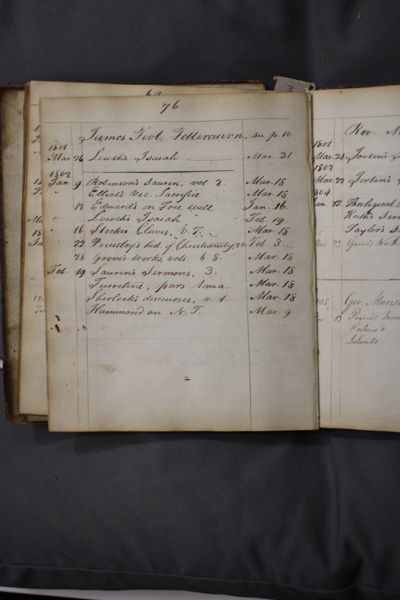 76
James Foot, Fettercairn, see p. 10
1801
Mar 26 Lowth's Isaiah Mar. 31
1802
Jan 9 Robinson's Saurin, vol. 2 Mar. 18
Elliot's Vic. Sacrifice Mar. 18
12 Edwards on Free will Jan. 16.
Lowth's Isaiah Feb. 19
16 Stockii Clavis, V. T. Mar. 18
22 Priestley's hist of Christianity, Feb. 3
28 Grove's works, vols. 6. 8. Mar. 18
Feb. 19 Saurin's Sermons, 3. Mar. 18
Turretini, pars 1ma. Mar. 18
Sherlock's discourses, v. 1 Mar. 18
Hammond on N. T. Mar. 9
Rev.
1801
Mar. 24 Jortin's
1802
Mar. 22 Jortin's
1804
12 Theological
Taylor's
23 Grove's Work
Geo.